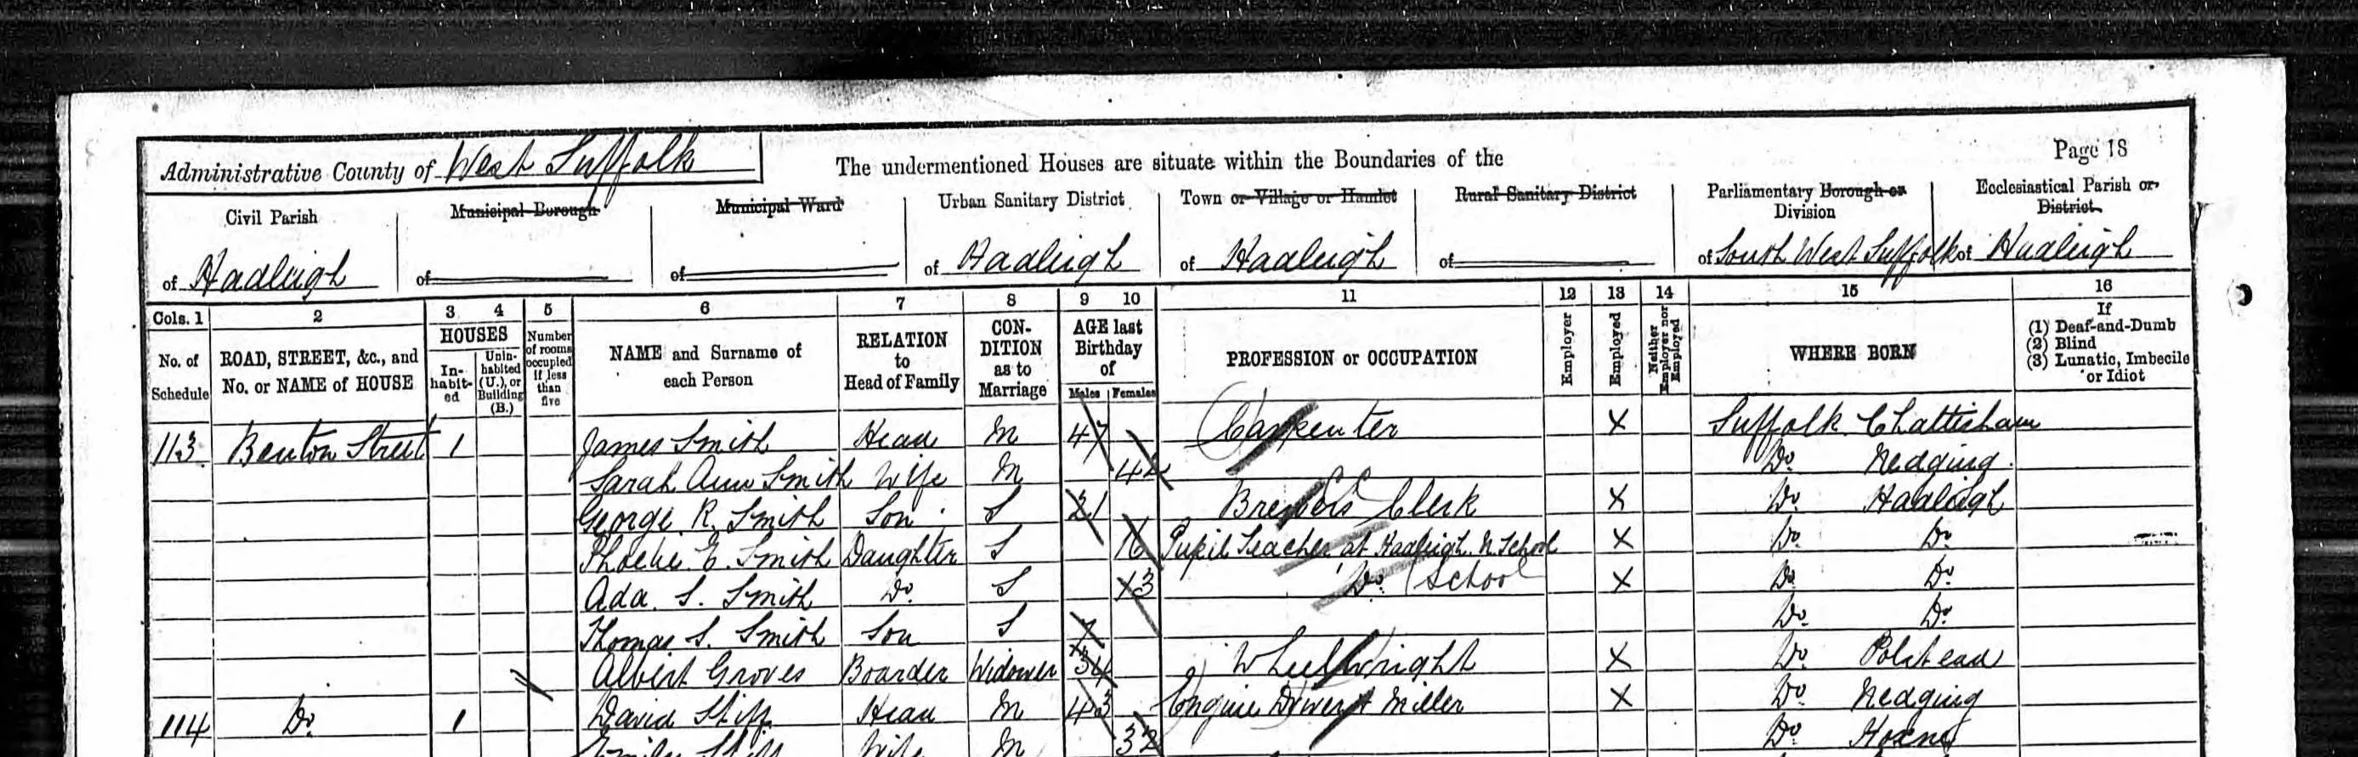 Page 18
Administrative County of West Suffolk
The undermentioned Houses are situate within the Boundaries of the
Civil Parish of Hadleigh
Municipal Borough of
Municipal Ward of
Urban Sanitary District of Hadleigh
Town or Village or Hamlet of Hadleigh
Rural Sanitary District of
Parliamentary Borough or Division of South West Suffolk
Ecclesiastical Parish or District of Hadleigh
Cols. 1 2 3 4 5 6 7 8 9 10 11 12 13 14 15 16
No. of Schedule
ROAD, STREET, &c., and No. or NAME of HOUSE
HOUSES
In-habit-ed
Unin-habited (U.), or Building (B.)
Number of rooms occupied if less than five
NAME and Surname of each Person
RELATION to Head of Family
CON-DITION as to Marriage
AGE last Birthday of
Males Females
PROFESSION or OCCUPATION
Employer
Employed
Neither Employer nor Employed
WHERE BORN
If
(1) Deaf-and-Dumb
(2) Blind
(3) Lunatic, Imbecile or Idiot
113 Benton Street 1 James Smith Head M 47 Carpenter X Suffolk Chattisham
Sarah Ann Smith Wife M 42 Do Nedging
George R. Smith Son S 21 Clerk X Do Hadleigh
Phoebe E. Smith Daughter S 16 Pupil Teacher at Hadleigh N School X Do Do
Ada S. Smith Do S 13 Do School X Do Do
Thomas S. Smith Son S 7 Do Do
Albert Groves Boarder Widower 34 Wheelwright X Do Polstead
114 Do 1 David Stiff Head M 43 Engine Driver at Miller X Do Nedging
Emily Stiff Wife M 32 Do